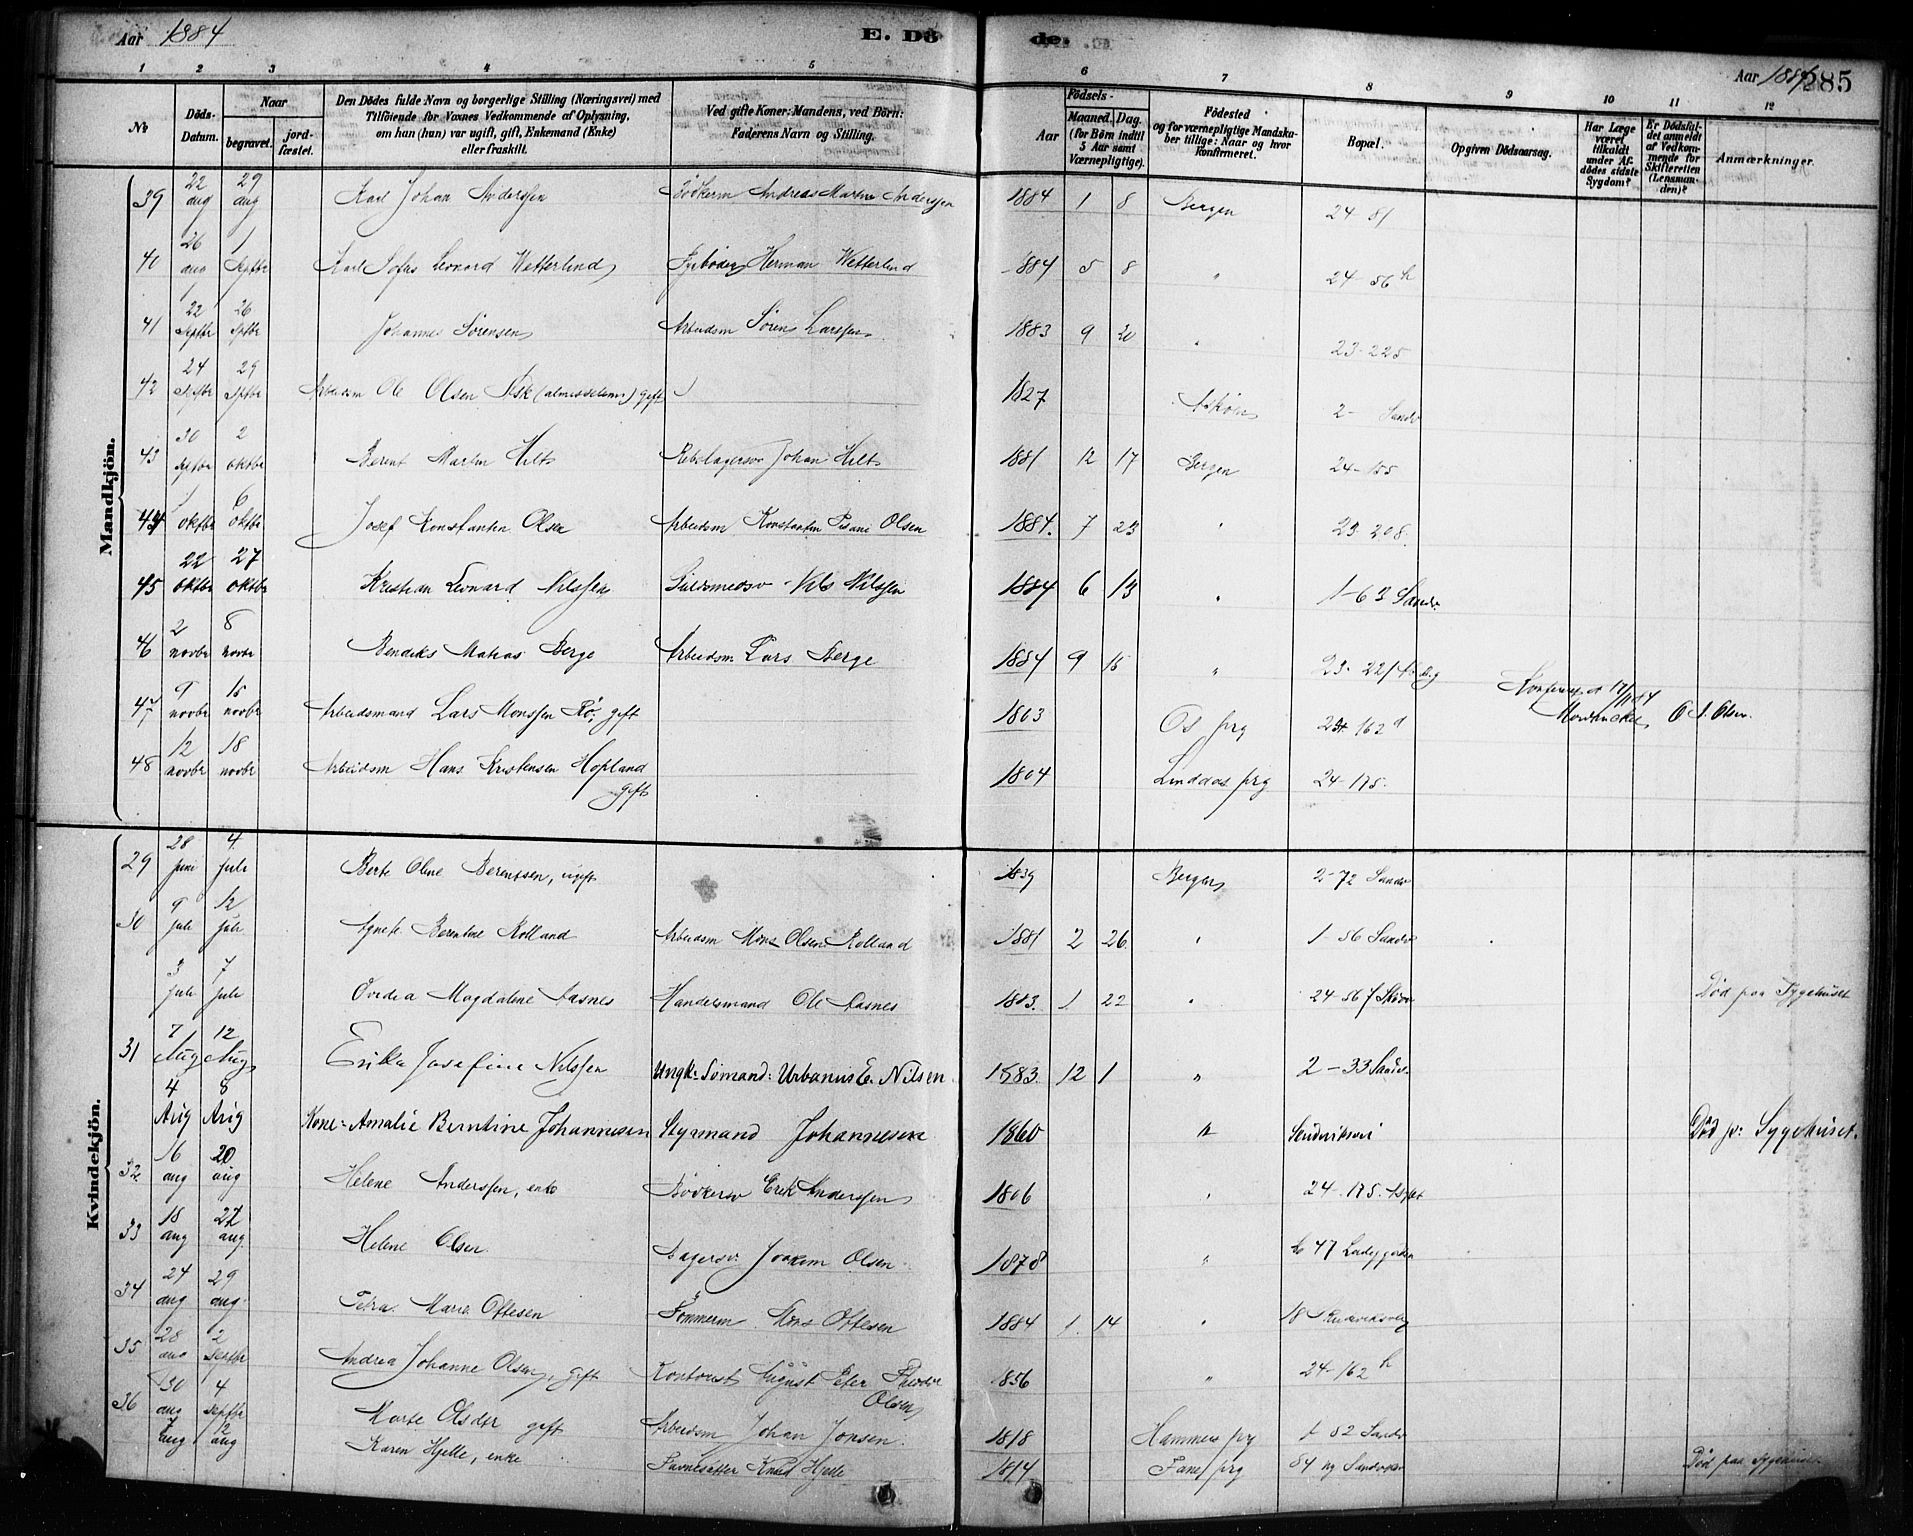 Aar 1884
E. Dö
de.
Aar 1884
285
1 2 3 4 5 6 7 8 9 10 11 12
No
Döds-
Datum.
Naar
begravet.
jord-
fæstet.
Den Dödes fulde Navn og borgerlige Stilling (Næringsvei) med
Tilföiende for Voxnes Vedkommende af Oplysning,
om han (hun) var ugift, gift, Enkemand (Enke)
eller fraskilt.
Ved gifte Koner: Mandens, ved Börn:
Faderens Navn og Stilling.
Födsels-
Aar
Maaned. Dag.
(for Börn indtil
5 Aar samt
Værnepligtige).
Födested
og for værnepligtige Mandska-
ber tillige: Naar og hvor
konfirmeret.
Bopæl.
Opgiven Dödsaarsag.
Har Læge
været
tilkaldt
under Af-
dödes sidste
Sygdom?
Er Dödsfal-
det anmeldt
af Vedkom-
mende for
Skifteretten
(Lensman-
den)?
Anmærkninger.
Mandkjön.
39 22 aug 29 aug Karl Johan Anderssen Bødkerm Andreas Martin Anderssen 1884 1 8 Bergen 24-81
40 26 aug 1 Septbr Karl Leonard Wetterlund Herman Wetterlund 1884 5 8 " 24-56 h
41 22 Septbr 26 Sptbr Johannes Sørensen Arbeidsm Søren Larssen 1883 9 20 " 23-225
42 24 Septbr 29 Sptbr Arbeidsm Ole Olsen Ask (almisselem) gift 1827 Askøen 2- Sandv
43 30 Septbr 2 oktbr Berent Martin Hilt Rebslagersv Johan Hilt 1881 12 17 Bergen 24-155
44 1 oktbr 6 oktbr Josef Konstantin Olsen Arbeidsm Konstantin Olsen 1884. 7 23 " 23-208.
45 22 oktbr 27 oktbr Kristian Leonard Nilssen Guldsmedsv Nils Nilssen 1884 6 13 " 1-63 Sandv.
46 2 novbr 8 novbr Bendiks Matias Berge Arbeidsm Lars Berge 1884 9 15 " 23-22
47 9 novbr 15 novbr Arbeidsmand Lars Monssen Rø. gift 1803 Os prg 162 O. Olsen.
48 12 novbr 18 novbr Arbeidsm Hans Kristensen Hopland gift 1804 Lindaas prg 24-175.
Kvindekjön.
29 28 juni 4 juli Berte Oline Berentsen, ugift 1839 Bergen 2-72 Sandv
30 9 juli 12 juli Agnete Berentine Rolland Arbeidsm Mons Olsen Rolland 1881 2 26 " 1-56 Sandv
3 juli 7 juli Ovedia Magdalene Aasnes Handelsmand Ole Aasnes 1883. 1 22 " 24-56 Død paa Sygehuset
31 7 Aug 12 Aug Erika Josefine Nilssen Ungk: Sømand: Urbanus E. Nilsen 1883. 12 1 " 2-33 Sandv.
4 Aug 8 Aug Kone: Amalie Berntine Johannesen Styrmand Johannesen 1860 " Sandviksvei Død p: Sygehuset.
32 16 aug 20 aug Helene Anderssen, enke Bødkersv Erik Anderssen 1806 " 24-175.
33 18 aug 22 aug Helene Olsen Bagersv. Joakim Olsen 1878 " 47
34 24 aug 29 aug Petra Marie Oftesen Tømmerm Mons Oftesen 1884 1 14 " 18 Sandviksvei
35 28 aug 2 Septbr Andrea Johanne Olsen, gift Kontorist August Peter Theodor Olsen 1856 " 24-162 h
36 30 aug 4 Septbr Marte Olsdtr gift Arbeidsm Johan Jonsen. 1818 Hammers prg 1 82 Sandv
7 aug 12 aug Karen Hjelle, enke Knud Hjelle 1814 Fane prg 84 Død paa Sygehuset